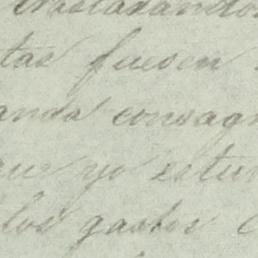 trasladandos
tas fuesen
anda consagr
que yo estu
los gastos